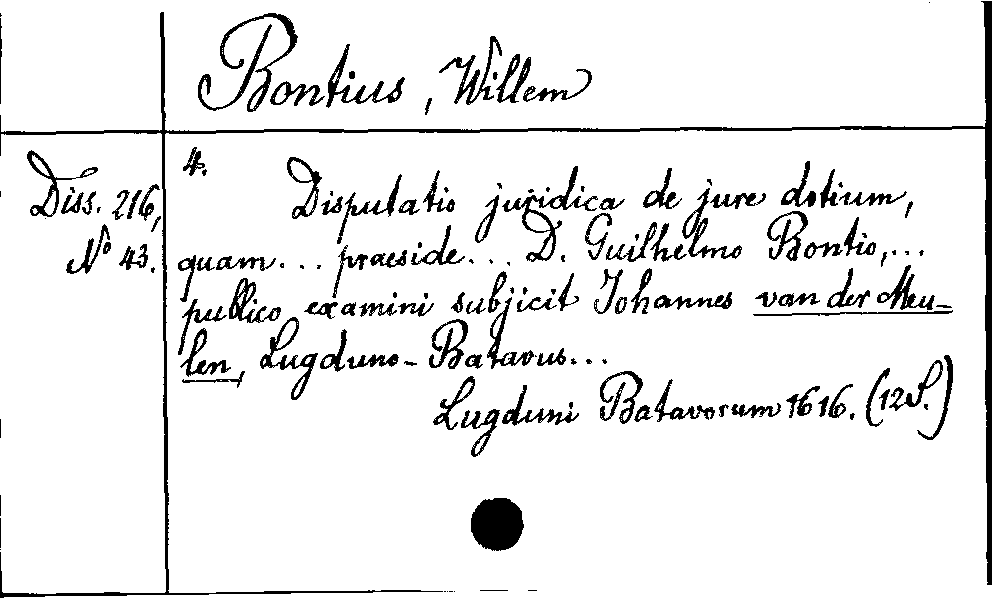 Bontius, Willem
Diss. 216,
No 43.
4.
Disputatio juridica de jure dotium,
quam... praeside... D. Guilhelmo Bontio,...
publico examini subjicit Johannes van der Meu-
len, Lugduno-Batavus...
Lugduni Batavorum 1616. (12 S.)